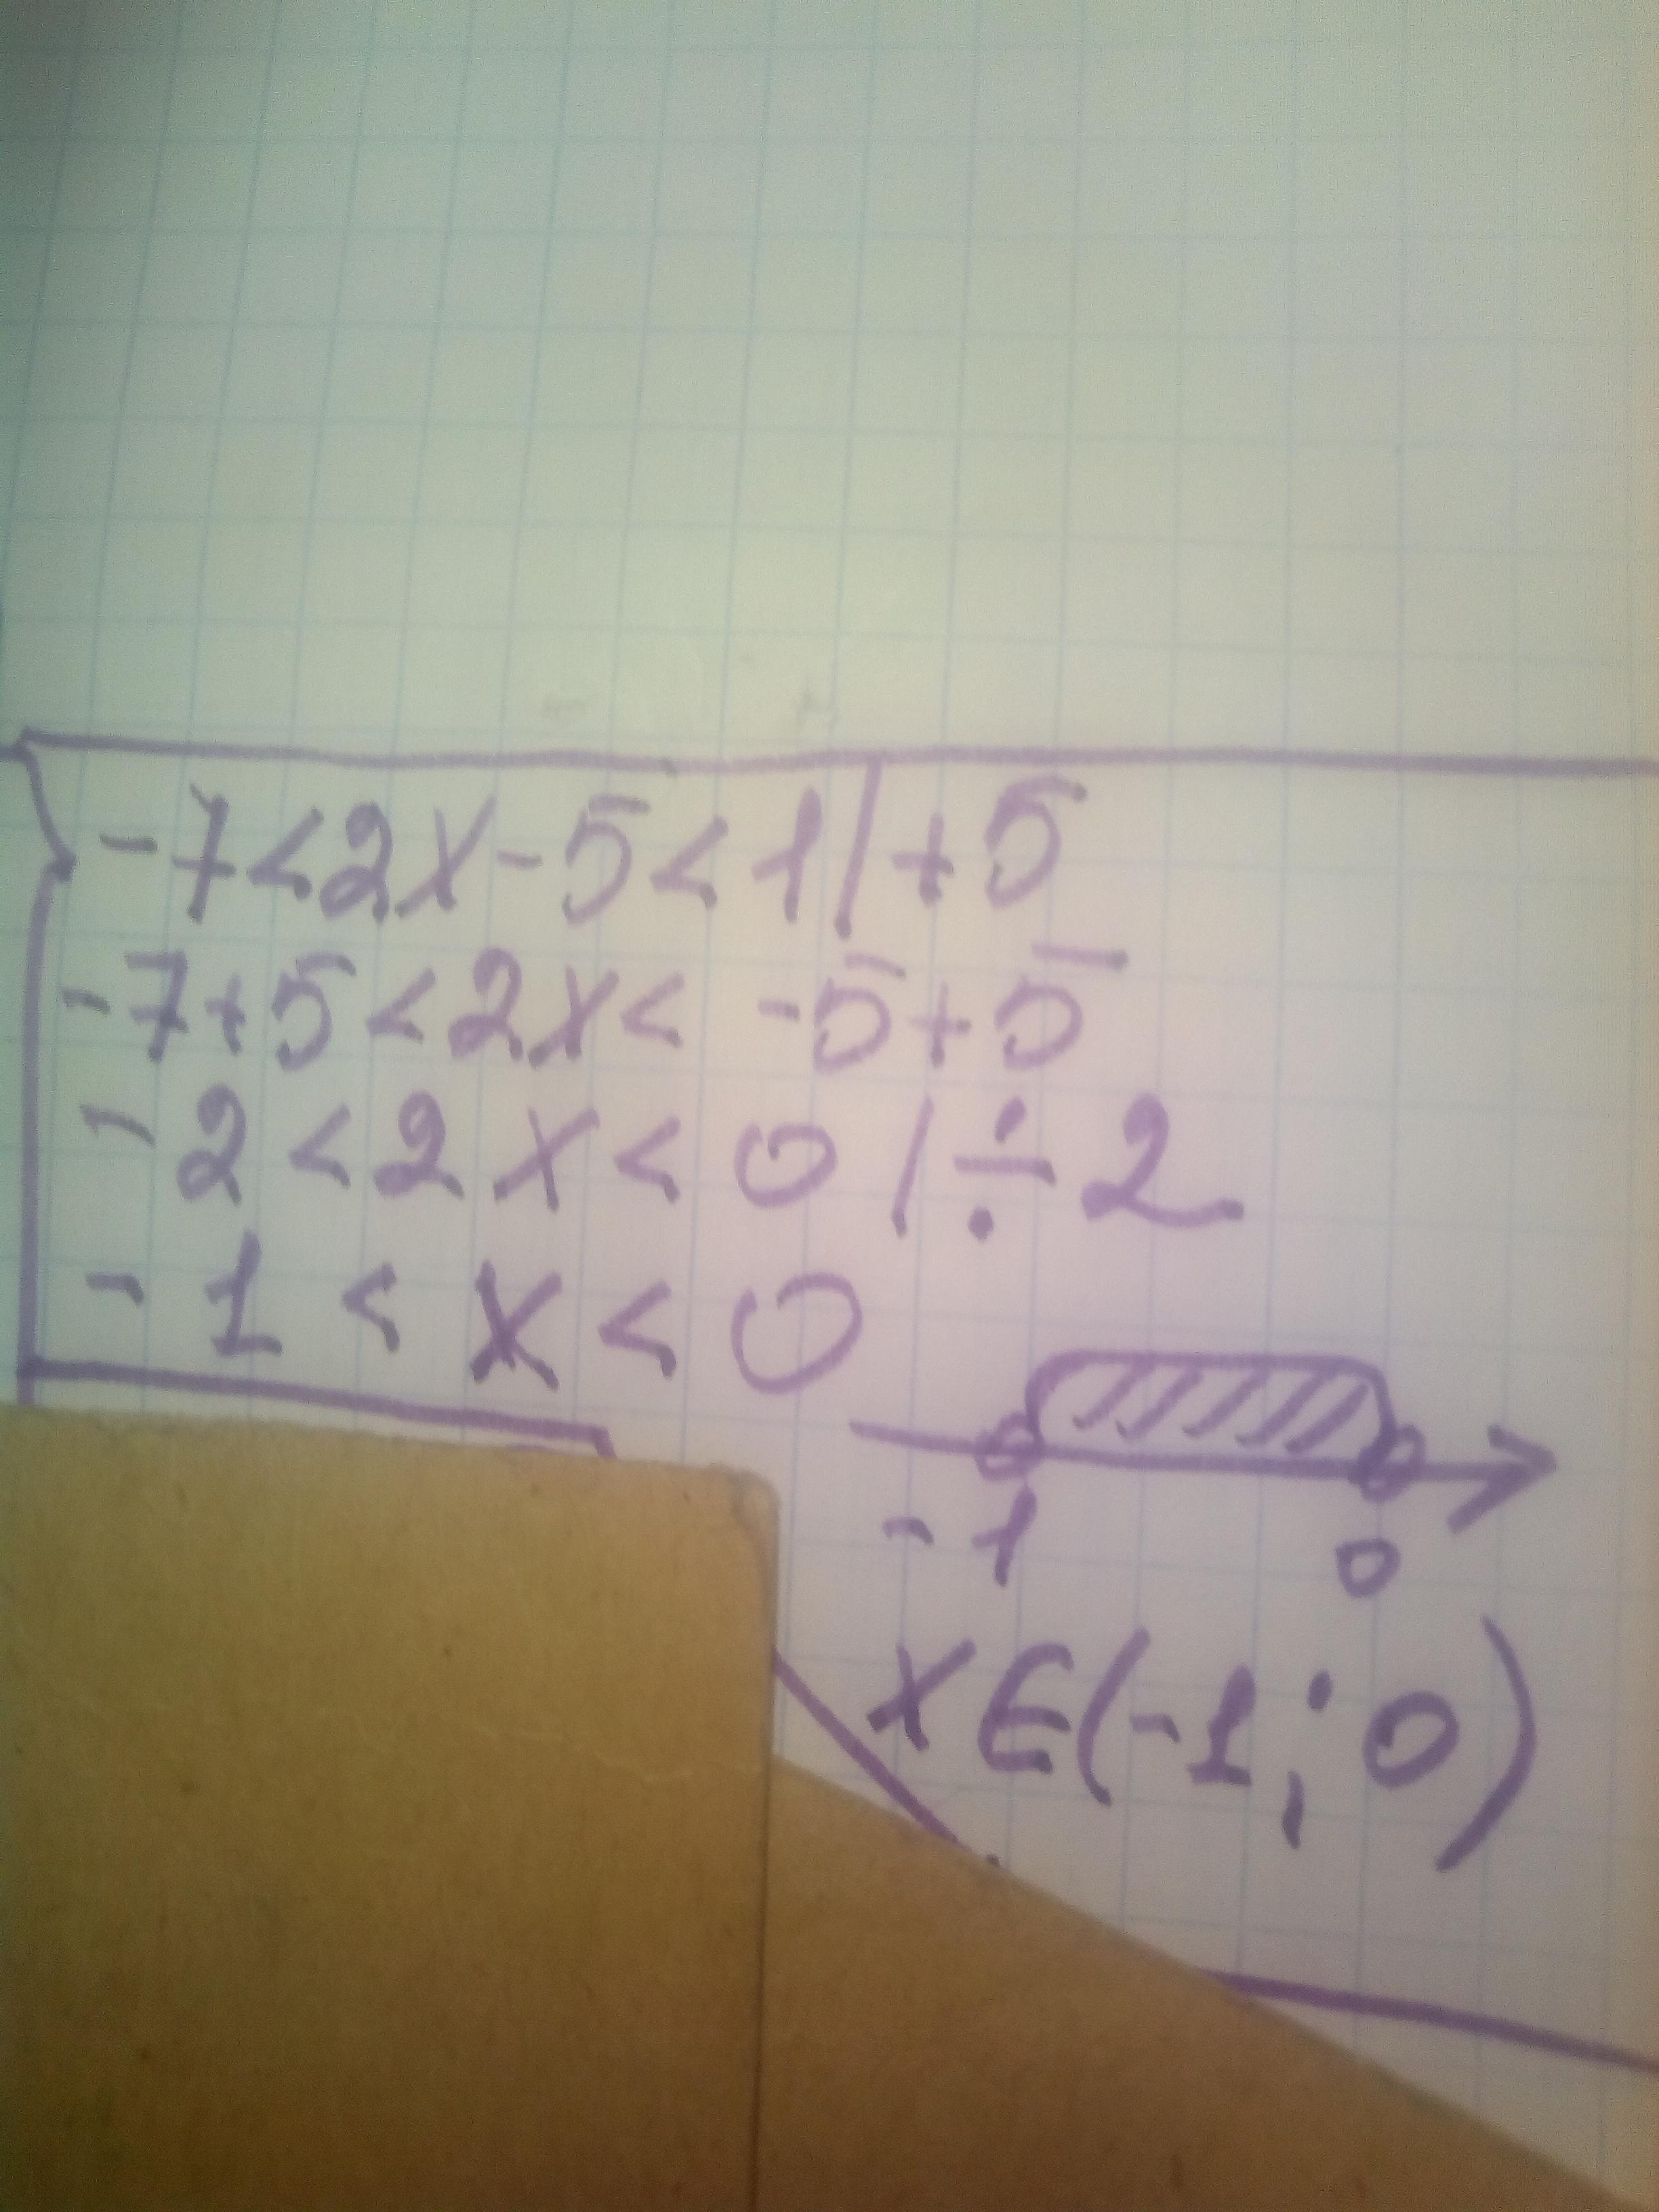 -7<2x-5<1|+5
-7+5<2x< -5+5
-2<2x<0 |÷2
-1<x<0
-1 0
x∈(-1;0)